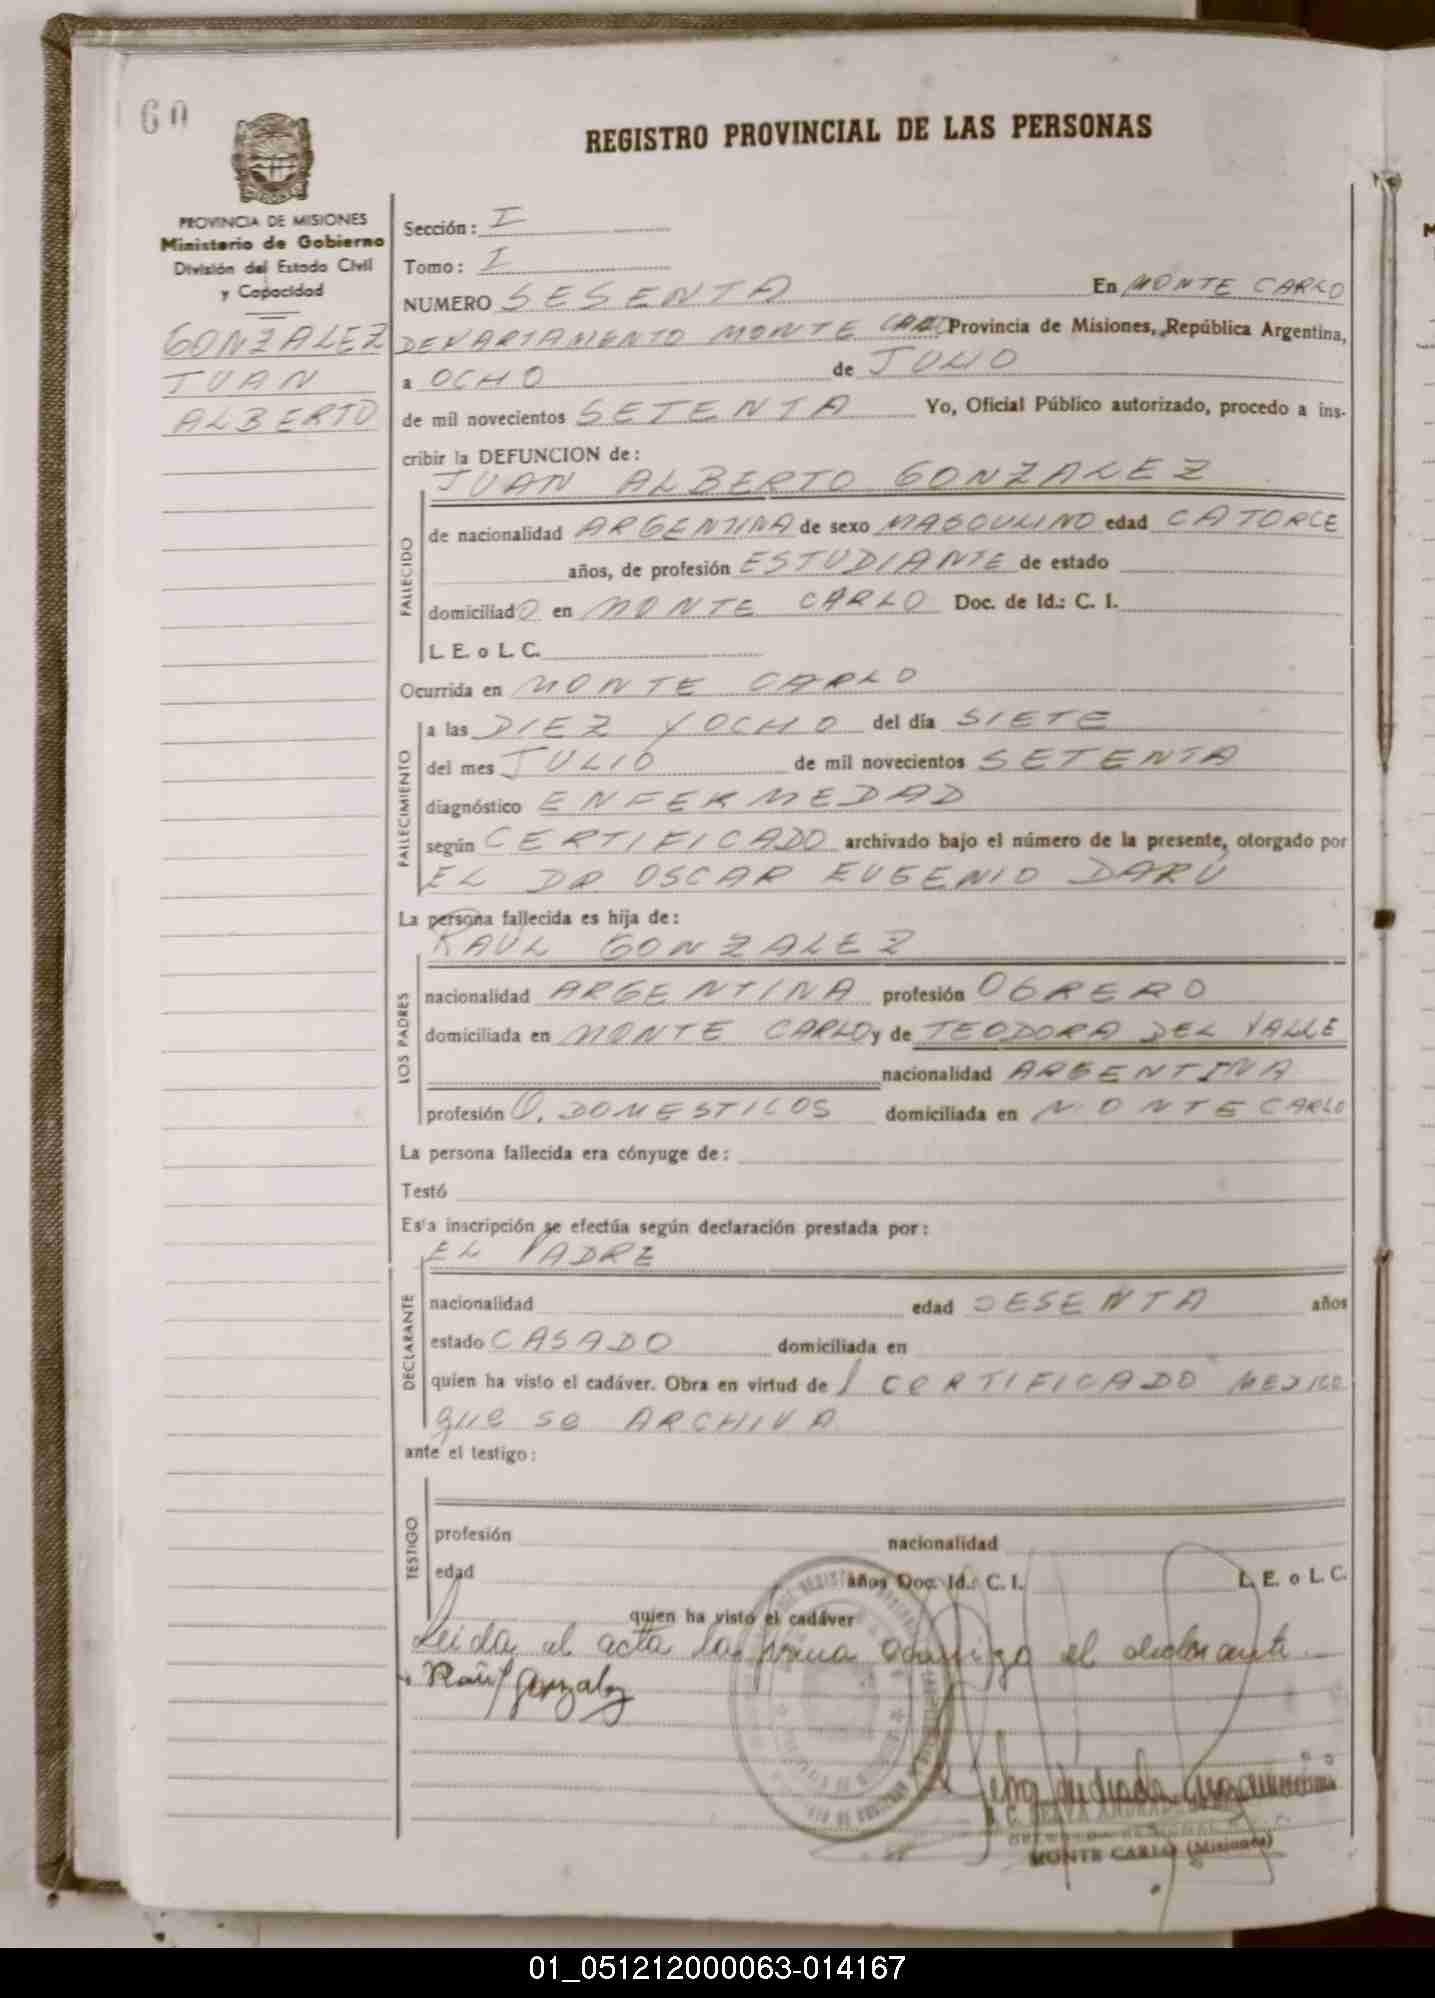 60
REGISTRO PROVINCIAL DE LAS PERSONAS
PROVINCIA DE MISIONES
Ministerio de Gobierno
División del Estado Civil
y Capacidad
GONZALEZ
JUAN
ALBERTO
Sección: I
Tomo: I
NUMERO SESENTA En MONTE CARLO
DEPARTAMENTO MONTE CARLO Provincia de Misiones, República Argentina,
a OCHO de JULIO
de mil novecientos SETENTA Yo, Oficial Público autorizado, procedo a ins-
cribir la DEFUNCION de:
JUAN ALBERTO GONZALEZ
FALLECIDO
de nacionalidad ARGENTINA de sexo MASCULINO edad CATORCE
años, de profesión ESTUDIANTE de estado
domiciliado en MONTE CARLO Doc. de Id.: C. I.
L. E. o L. C.
Ocurrida en MONTE CARLO
FALLECIMIENTO
a las DIEZ Y OCHO del día SIETE
del mes JULIO de mil novecientos SETENTA
diagnóstico ENFERMEDAD
según CERTIFICADO archivado bajo el número de la presente, otorgado por
EL DR OSCAR EUGENIO DARU
La persona fallecida es hija de:
RAUL GONZALEZ
LOS PADRES
nacionalidad ARGENTINA profesión OBRERO
domiciliada en MONTE CARLO y de TEODORA DEL VALLE
nacionalidad ARGENTINA
profesión Q. DOMESTICOS domiciliada en MONTE CARLO
La persona fallecida era cónyuge de:
Testó
Esta inscripción se efectúa según declaración prestada por:
EL PADRE
DECLARANTE
nacionalidad edad SESENTA años
estado CASADO domiciliada en
quien ha visto el cadáver. Obra en virtud de 1 CERTIFICADO MEDICO
que se ARCHIVA
ante el testigo:
TESTIGO
profesión nacionalidad
edad años Doc. Id.: C. I. L. E. o L. C.
quien ha visto el cadáver
Leida el acta la firma conmigo el declarante
Raúl Gonzalez
MONTE CARLO (Misiones)
01_051212000063-014167